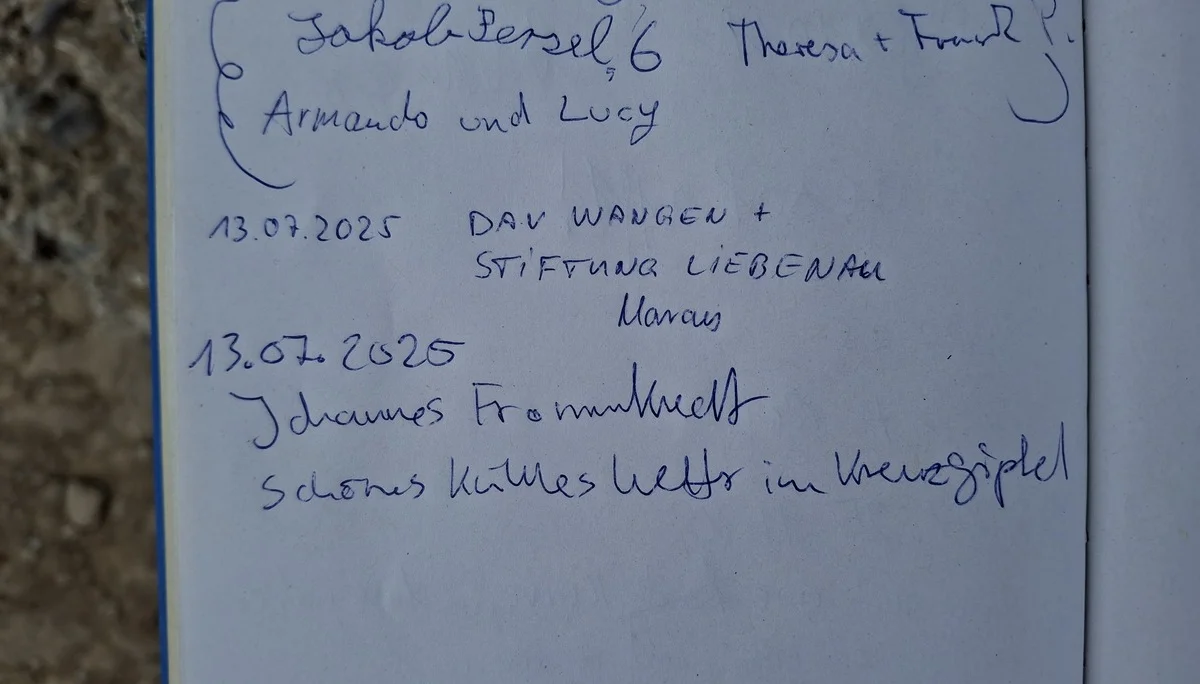 Jakob Persel, 6 Theresa + Frank P.
Armando und Lucy
13.07.2025 DAV WANGEN +
STIFTUNG LIEBENAU
Marcus
13.07.2025
Johannes Frommknecht
Schönes Kühles Wettr im Kreuzgipfel